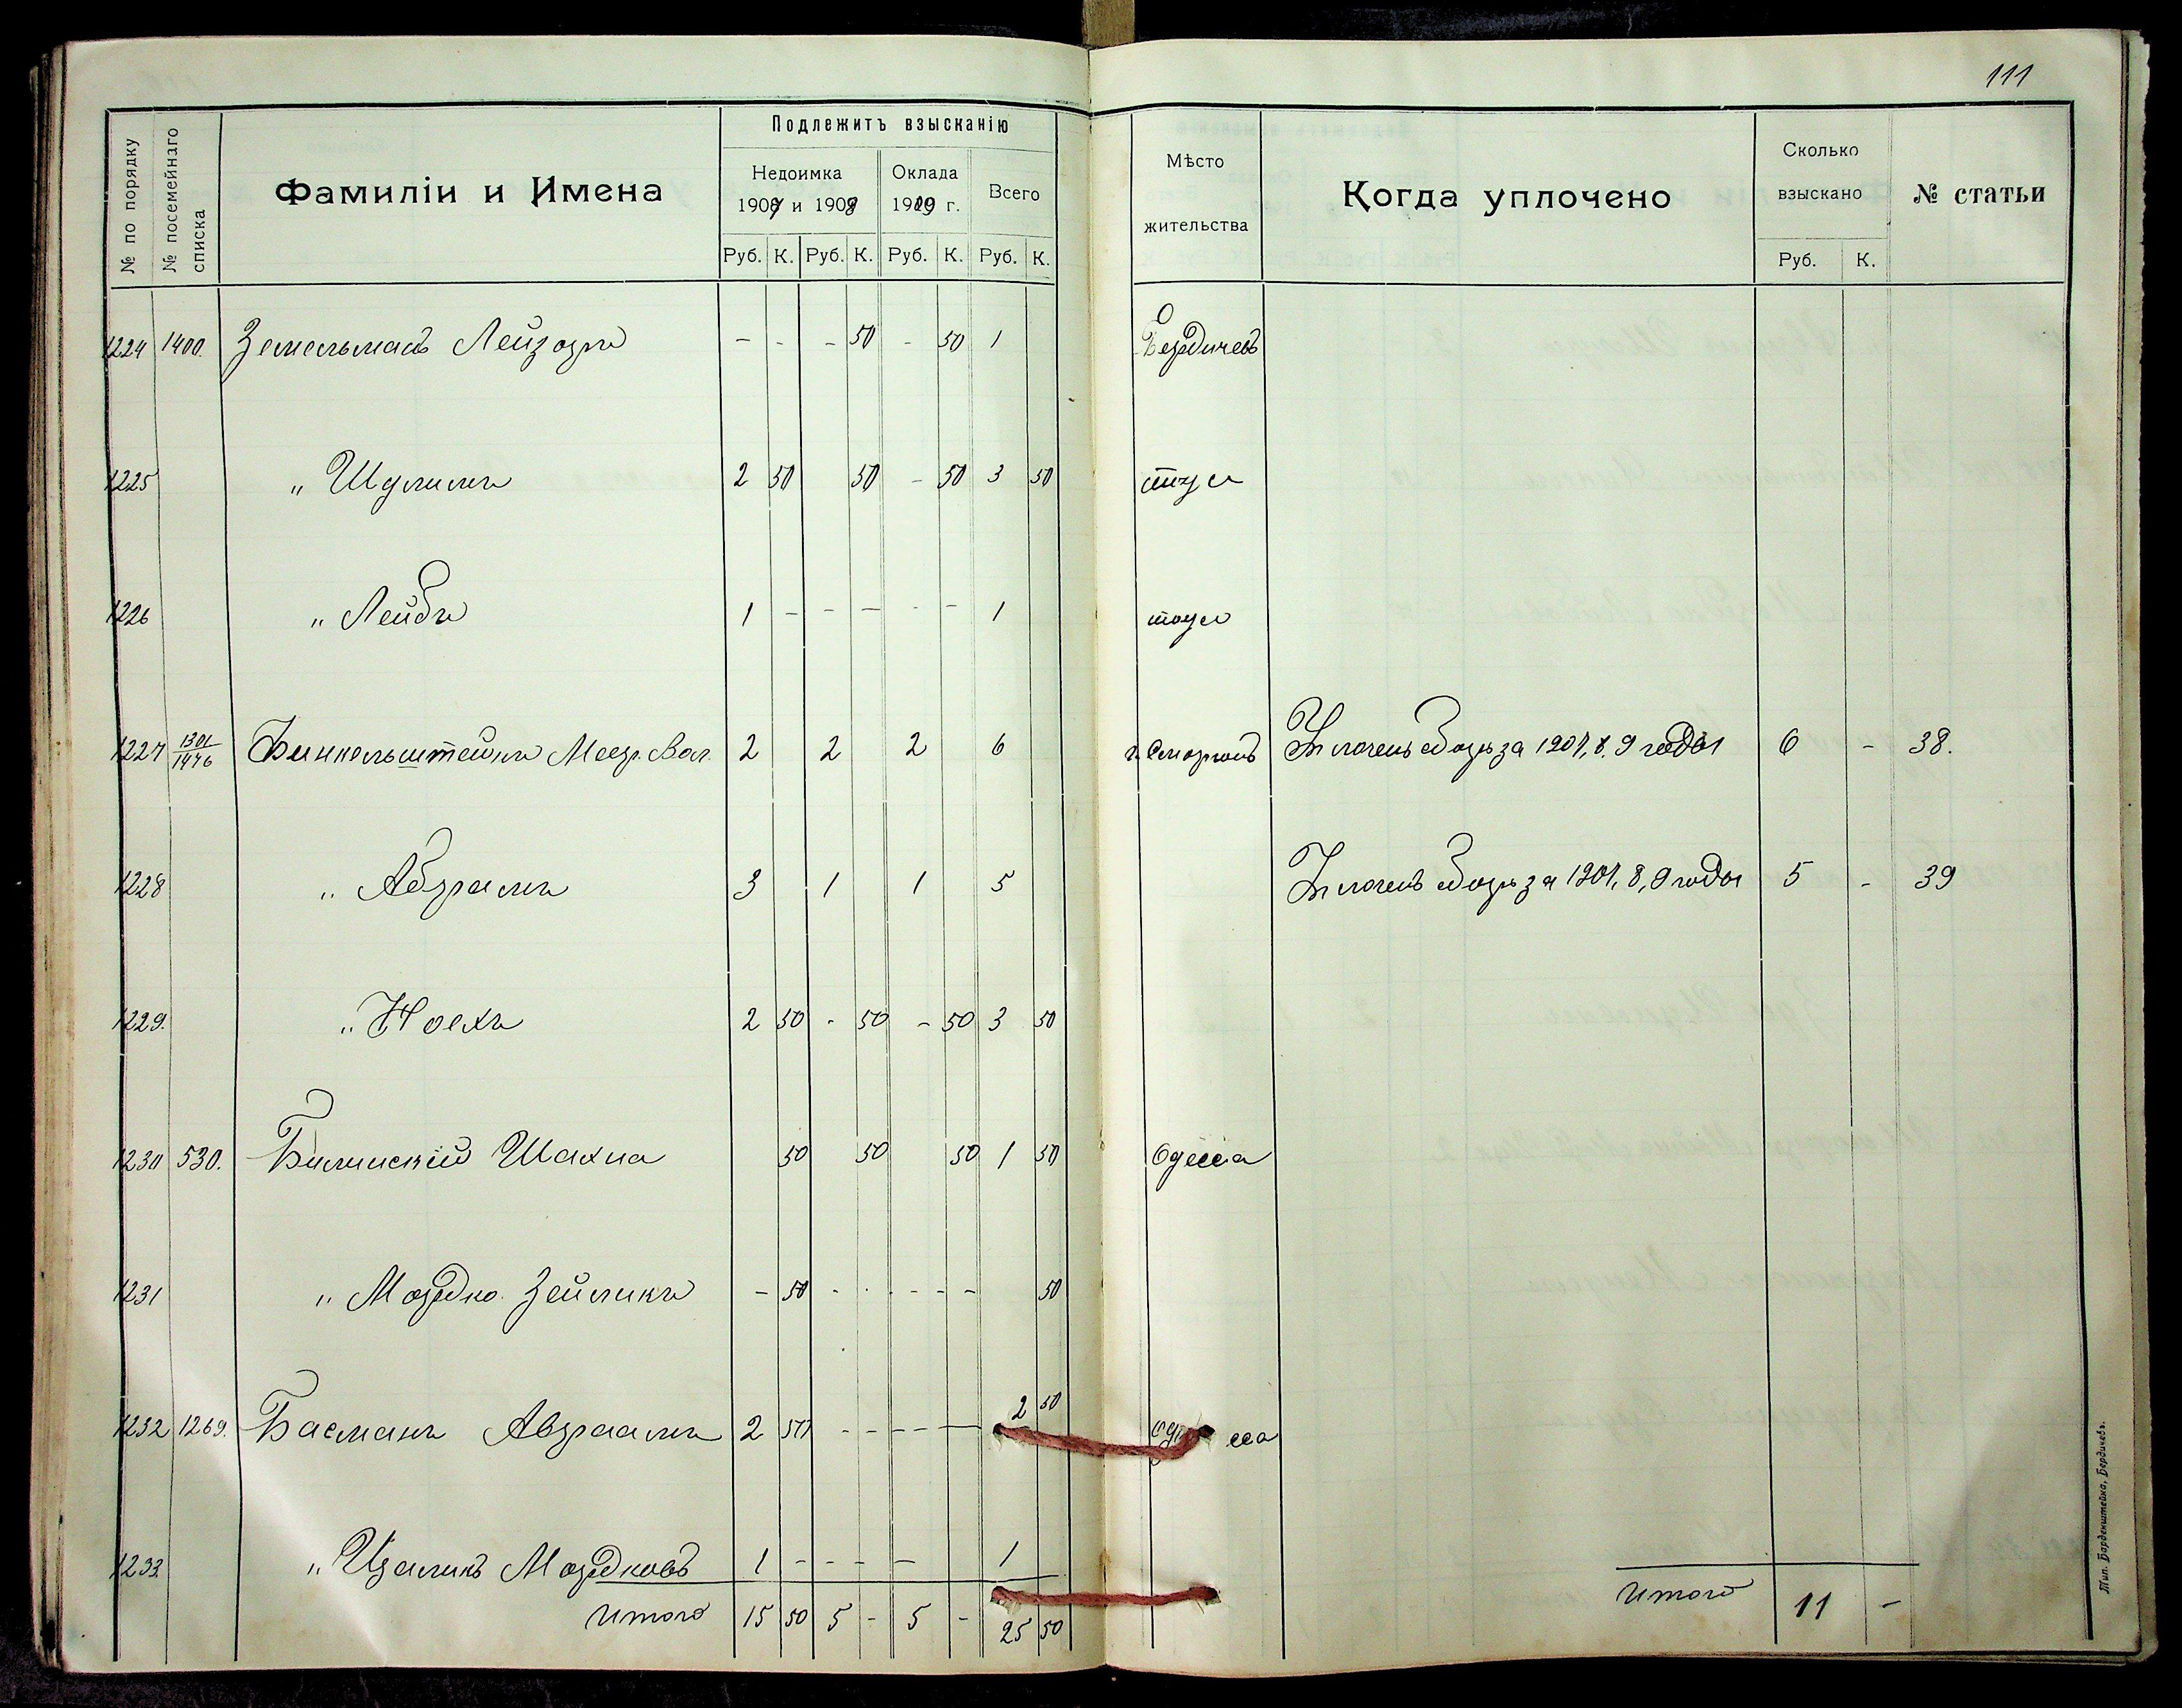 111
№ по порядку
№ посемейнаго списка
Фамиліи и Имена
Подлежитъ взысканію
Недоимка
1907 и 1908
Оклада
1909 г.
Всего
Руб. К. Руб. К. Руб. К. Руб. К.
Мѣсто
жительства
Когда уплочено
Сколько
взыскано
Руб. К.
№ статьи
1224 1400. Земельманъ Лейзоръ - - - 50 - 50 1 Бердичевъ
1225 " Шулимъ 2 50 50 - 50 3 50 тоже
1226 " Лейбъ 1 - - - - - 1 тоже
1227 1301/1476 Финкельштейнъ Меер. Вол. 2 2 2 6 г. Сморгонь Уплоченъ сборъ за 1907, 8, 9 годы 6 - 38.
1228 " Абрамъ 3 1 1 5 Уплоченъ сборъ за 1907, 8, 9 годы 5 - 39
1229. " Ноехъ 2 50 - 50 - 50 3 50
1230 530. Билинскій Шахна 50 50 50 1 50 Одесса
1231 " Мордко Зейликъ - 50 - - - - - 50
1232 1269. Басманъ Авраамъ 2 50 - - - - 2 50 Одесса
1233. " Ицаликъ Мордковъ 1 - - - - 1
Итого 15 50 5 - 5 - 25 50
Итого 11 -
Тип. Барденштейна, Бердичевъ.